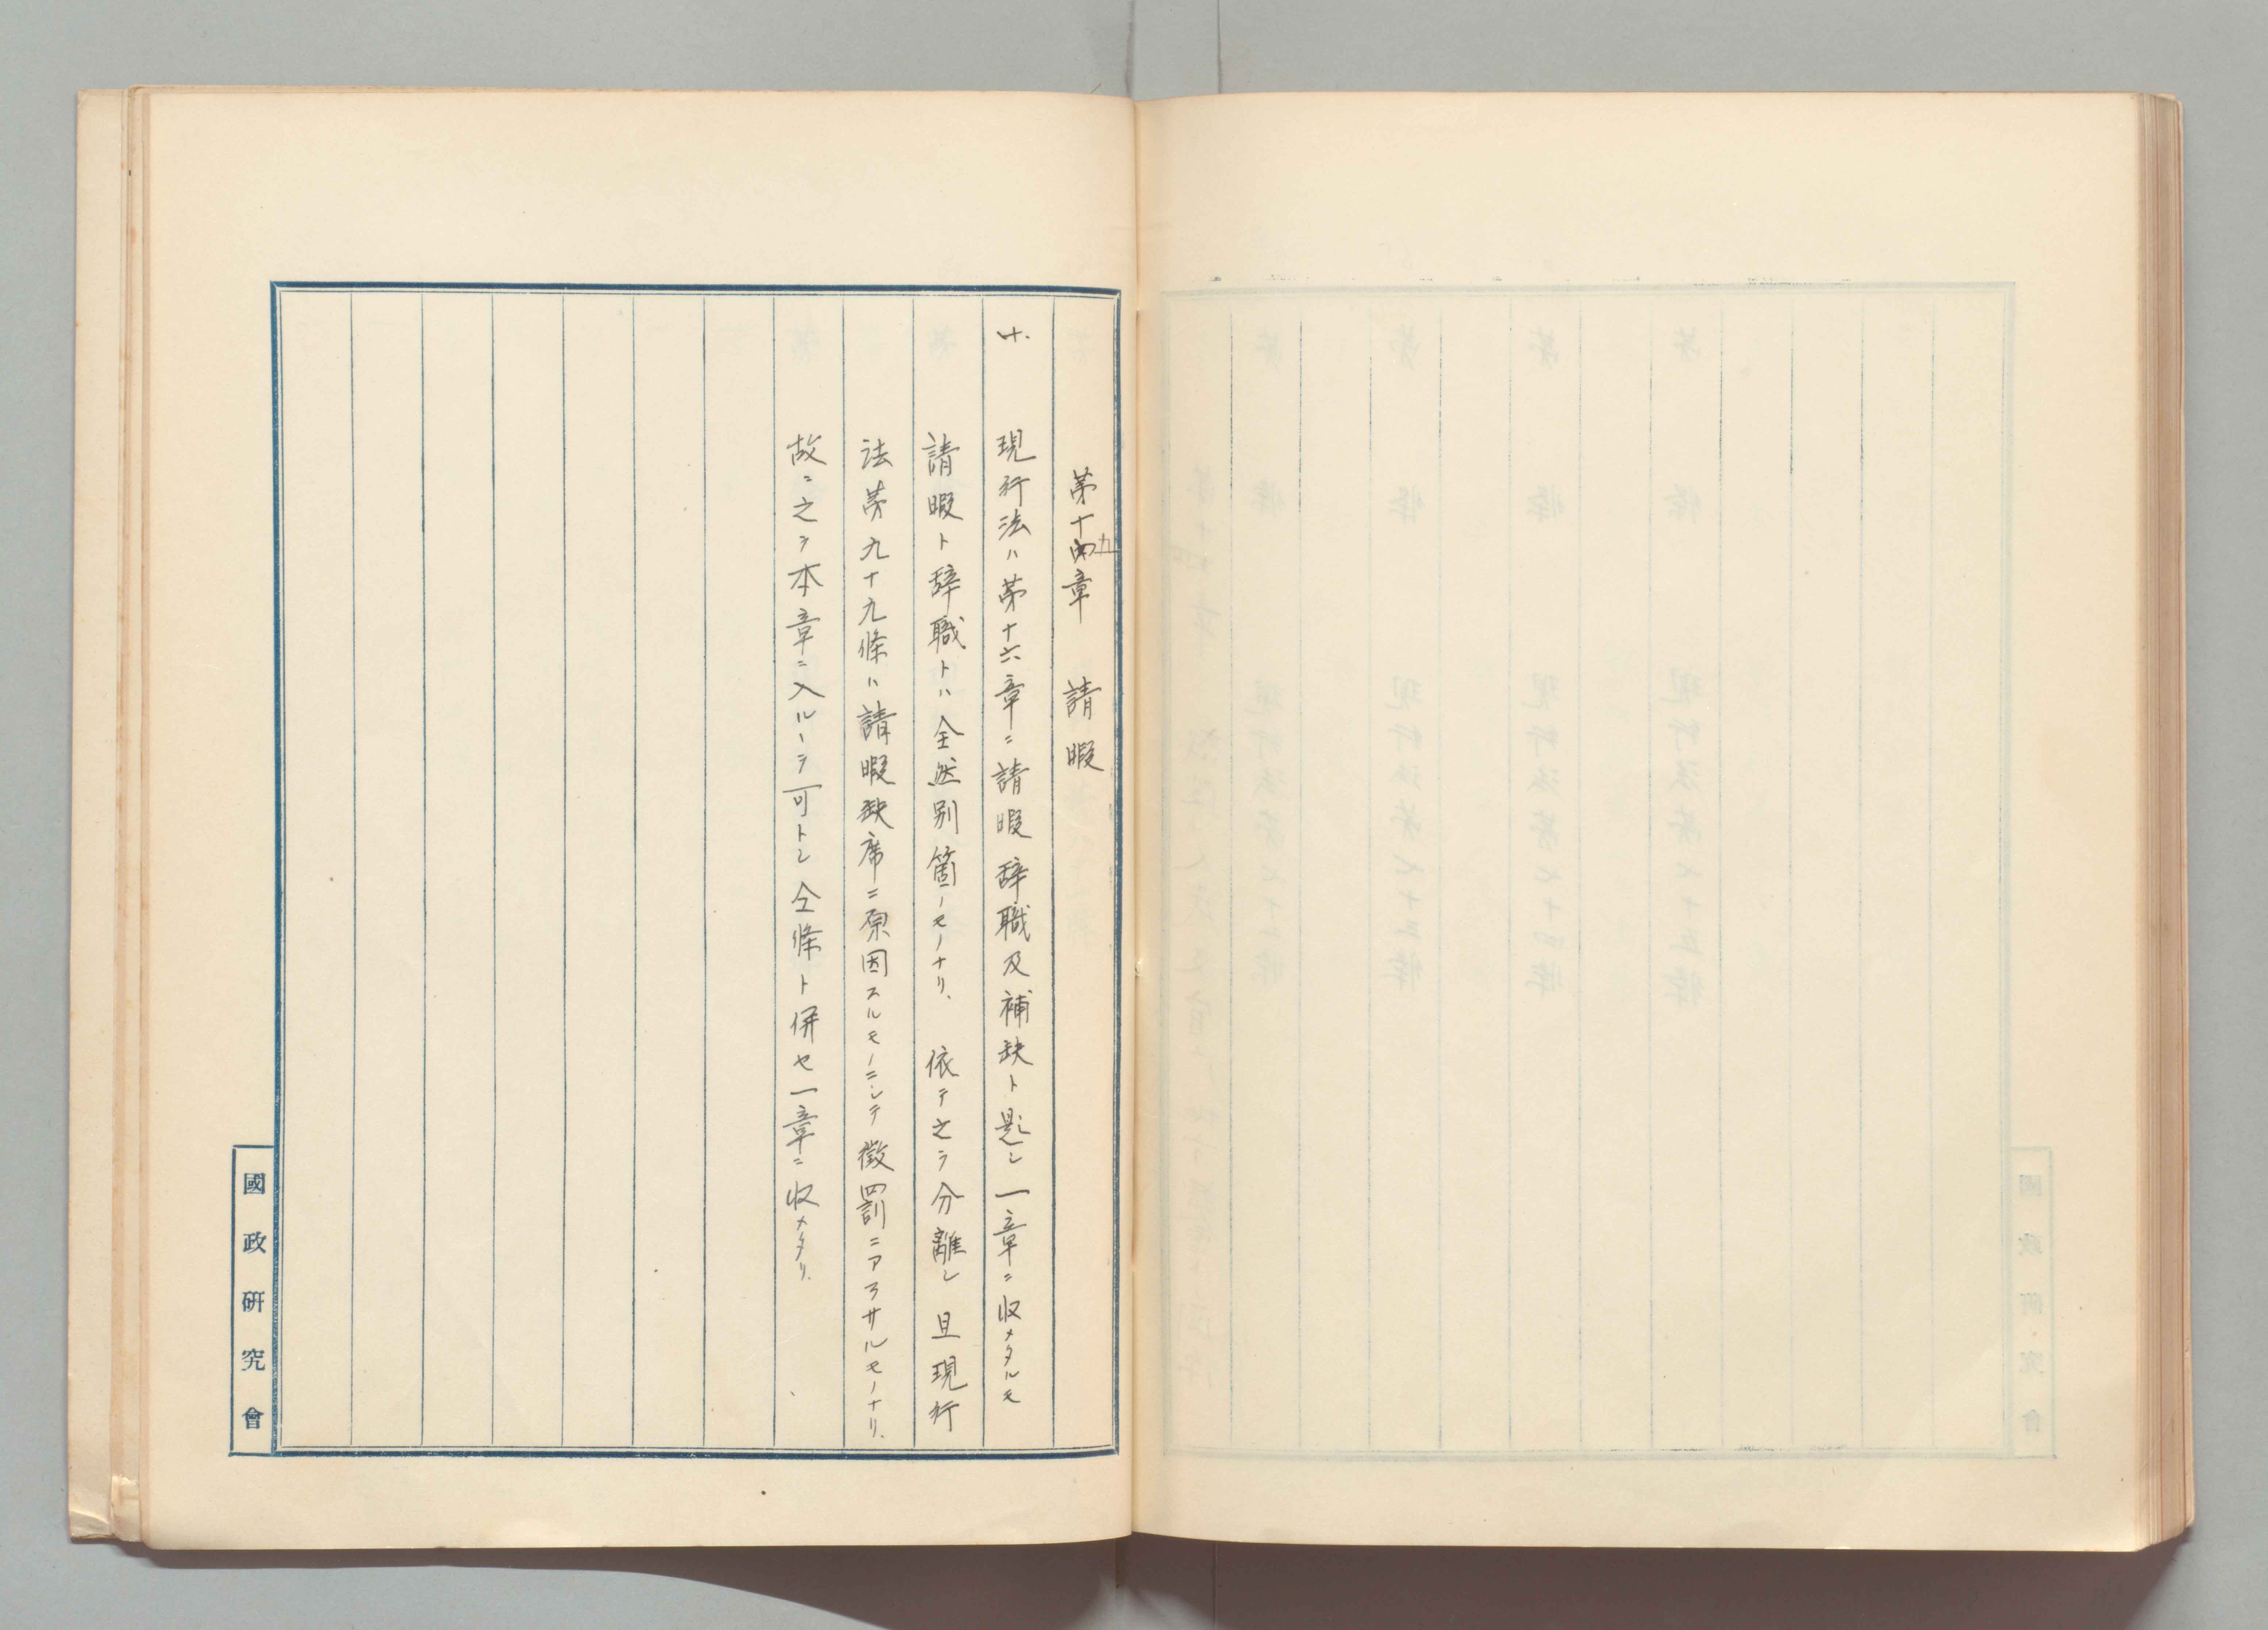 第十九章　請暇
現行法ハ第十六章ニ請暇辞職及補缺ト題シ一章ニ収メタルモ
請暇ト辞職トハ全然別箇ノモノナリ、　依テ之ヲ分離シ且現行
法第九十九條ハ請暇缺席ニ原因スルモノニシテ徴罰ニアラサルモノナリ、
故ニ之ヲ本章ニ入ルヽヲ可トシ仝條ト併セ一章ニ収メタリ、
國政研究會